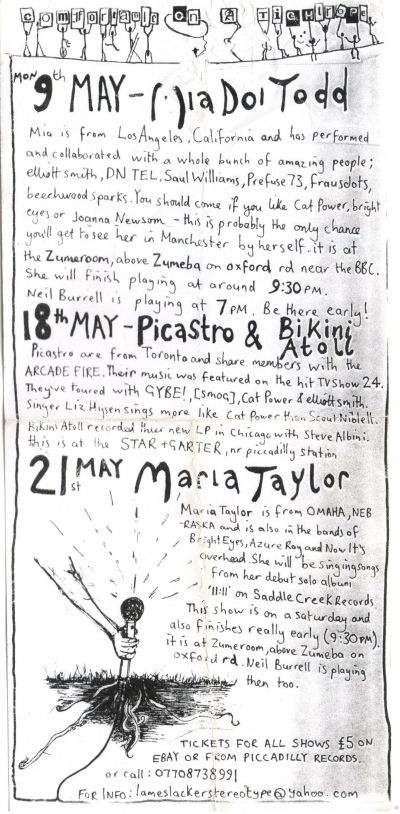 comfortable on a tightrope
MON 9th MAY - Mia Doi Todd
Mia is from Los Angeles, California and has performed
and collaborated with a whole bunch of amazing people;
elliott smith, DNTEL, Saul Williams, Prefuse 73, Frausdots,
beechwood sparks. You should come if you like Cat Power, bright
eyes or Joanna Newsom - this is probably the only chance
you'll get to see her in Manchester by herself. it is at
the Zumeroom, above Zumeba on oxford rd near the BBC.
She will finish playing at around 9:30 PM.
Neil Burrell is playing at 7 PM. Be there early!
18th MAY - Picastro & Bikini Atoll
Picastro are from Toronto and share members with the
ARCADE FIRE. Their music was featured on the hit TV show 24.
They've toured with GYBE!, [smog], Cat Power & elliott smith.
Singer Liz Hysen sings more like Cat Power than Scout Niblett.
Bikini Atoll recorded their new LP in Chicago with Steve Albini.
this is at the STAR + GARTER, nr piccadilly station
21st MAY Maria Taylor
Maria Taylor is from OMAHA, NEB
-RASKA and is also in the bands of
Bright Eyes, Azure Ray and Now It's
overhead. She will be singing songs
from her debut solo album
'11:11' on Saddle Creek Records
This show is on a saturday and
also finishes really early (9:30PM).
it is at Zumeroom, above Zumeba on
oxford rd. Neil Burrell is playing
then too.
TICKETS FOR ALL SHOWS £5 ON
EBAY OR FROM PICCADILLY RECORDS.
or call: 07708738991
FOR INFO: lameslackerstereotype@yahoo.com